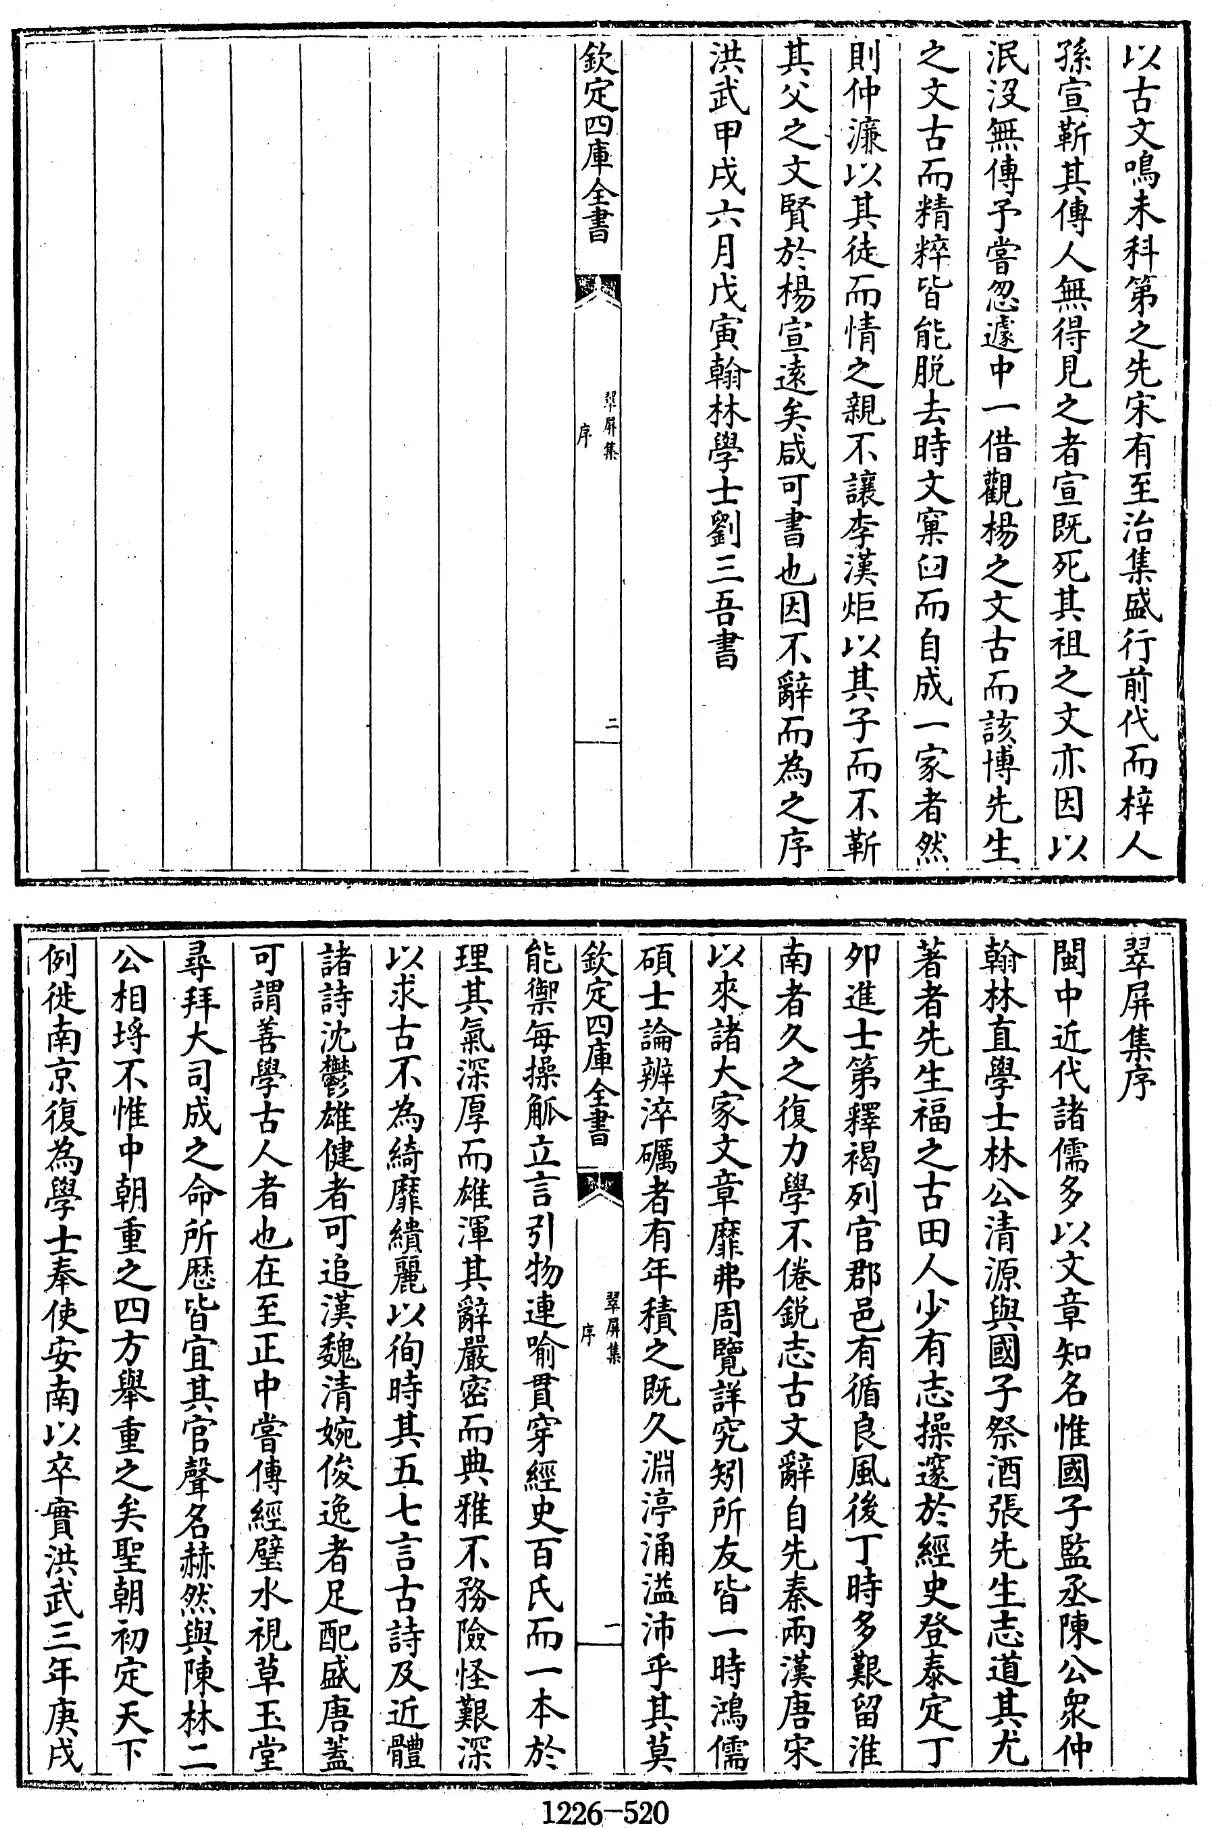 以古文鳴未科第之先宋有至治集盛行前代而梓人
孫宣靳其傳人無得見之者宣既死其祖之文亦因以
泯沒無傳予嘗怱遽中一借觀楊之文古而該博先生
之文古而精粹皆能脱去時文窠臼而自成一家者然
則仲濂以其徒而情之親不讓李漢炬以其子而不靳
其父之文賢於楊宣遠矣咸可書也因不辭而為之序
洪武甲戌六月戊寅翰林學士劉三吾書
欽定四庫全書
翠屏集
序
二
翠屏集序
閩中近代諸儒多以文章知名惟國子監丞陳公衆仲
翰林直學士林公清源與國子祭酒張先生志道其尤
著者先生福之古田人少有志操邃於經史登泰定丁
夘進士第釋褐列官郡邑有循良風後丁時多艱留淮
南者久之復力學不倦鋭志古文辭自先秦兩漢唐宋
以來諸大家文章靡弗周覽詳究矧所友皆一時鴻儒
碩士論辨淬礪者有年積之既久淵渟涌溢沛乎其莫
欽定四庫全書
翠屏集
序
一
能禦每操觚立言引物連喻貫穿經史百氏而一本於
理其氣深厚而雄渾其辭嚴密而典雅不務險怪艱深
以求古不為綺靡繢麗以徇時其五七言古詩及近體
諸詩沈鬱雄健者可追漢魏清婉俊逸者足配盛唐蓋
可謂善學古人者也在至正中嘗傳經璧水視草玉堂
尋拜大司成之命所歴皆宜其官聲名赫然與陳林二
公相埒不惟中朝重之四方舉重之矣聖朝初定天下
例徙南京復為學士奉使安南以卒實洪武三年庚戌
1226-520